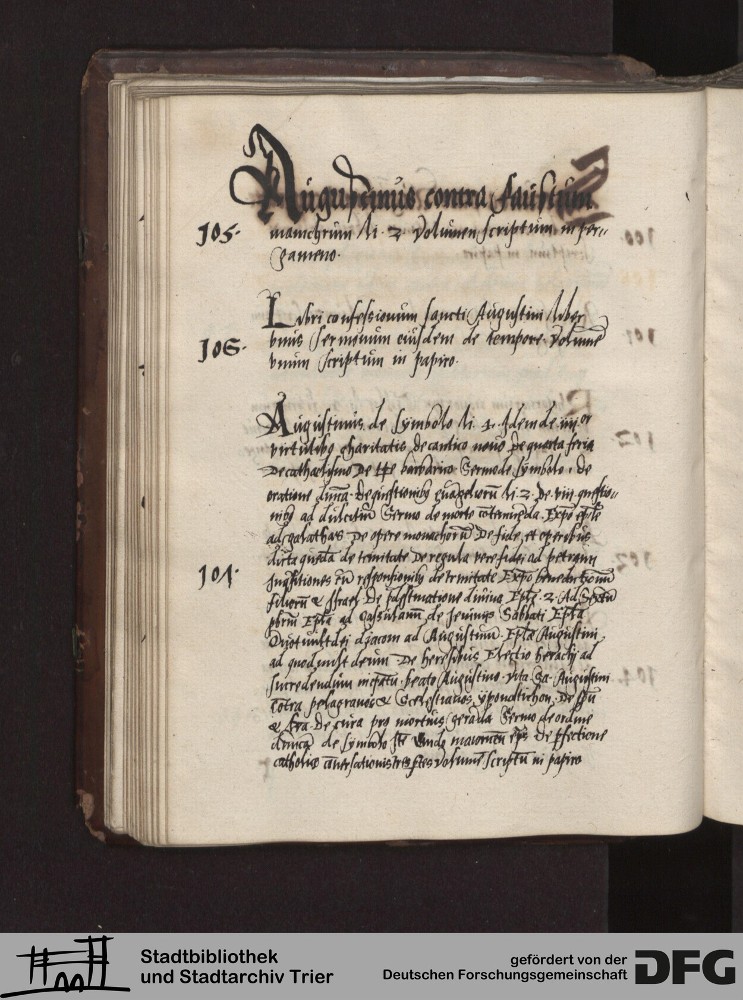 Augustinus contra faustum
105. manicheum li. 2. volumen scriptum in per-
gameno.
Libri confessionum sancti Augustini liber
106. vnus sermonum eiusdem de tempore. volumē
vnum scriptum in papiro.
Augustinus de symbolo li. 4. Idem de iiiior
virtutibus charitatis de cantico nouo de quarta feria
De cathaclismo De tpe barbarico Sermo de symbolo. de
oratione dnica. de questionibus euāgeliorū li. 2. De viii questio-
nibus ad dulcitiū Sermo de morte cōtemnēda. Expo eple
ad galathas De opere monachorū De fide et operibus
dicta quedā de trinitate De regula vere fidei ad petrum
Inqsitiones cū responsionibus de trinitate Expo benedictionum
filiorū Israel De pdestinatione diuina Epla. 2. Ad Sextū
pbrm Epla ad Cassulanū de Ieiunio Sabbati Epla
Quotuultdei dyaconi ad Augustinū. Epla Augustini
ad quoduult deum De heresibus Electio heraclij ad
succedendum beato Augustino. vita Sa. Augustini
107. cōtra pelagianos & Celestianos ypondtichon. De spū
& lrā. De cura pro mortuis gerēda Sermo de ordine
de symbolo De pfectione
catholice cōuersationis volumē scriptū in papiro
Stadtbibliothek
und Stadtarchiv Trier
gefördert von der
Deutschen Forschungsgemeinschaft
DFG